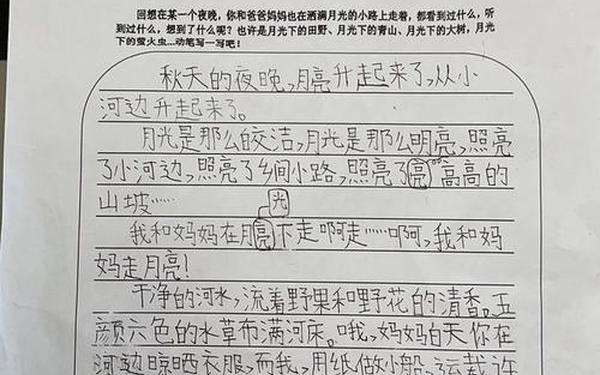 回想在某一个夜晚，你和爸爸妈妈也在洒满月光的小路上走着，都看到过什么，听
到过什么，想到了什么呢？也许是月光下的田野、月光下的青山、月光下的大树，月光
下的萤火虫…动笔写一写吧！
秋天的夜晚，月亮升起来了，从小
河边升起来了。
月光是那么的皎洁，月光是那么明亮，照亮
了小河边，照亮了乡间小路，照亮了亮高高的
山坡……
光
我和妈妈在月亮下走啊走……啊，我和妈
妈走月亮！
干净的河水，流着野果和野花的清香。五
颜六色的水草布满河床。哦，妈妈白天你在
河边晾晒衣服，而我，用纸做小船，运载许